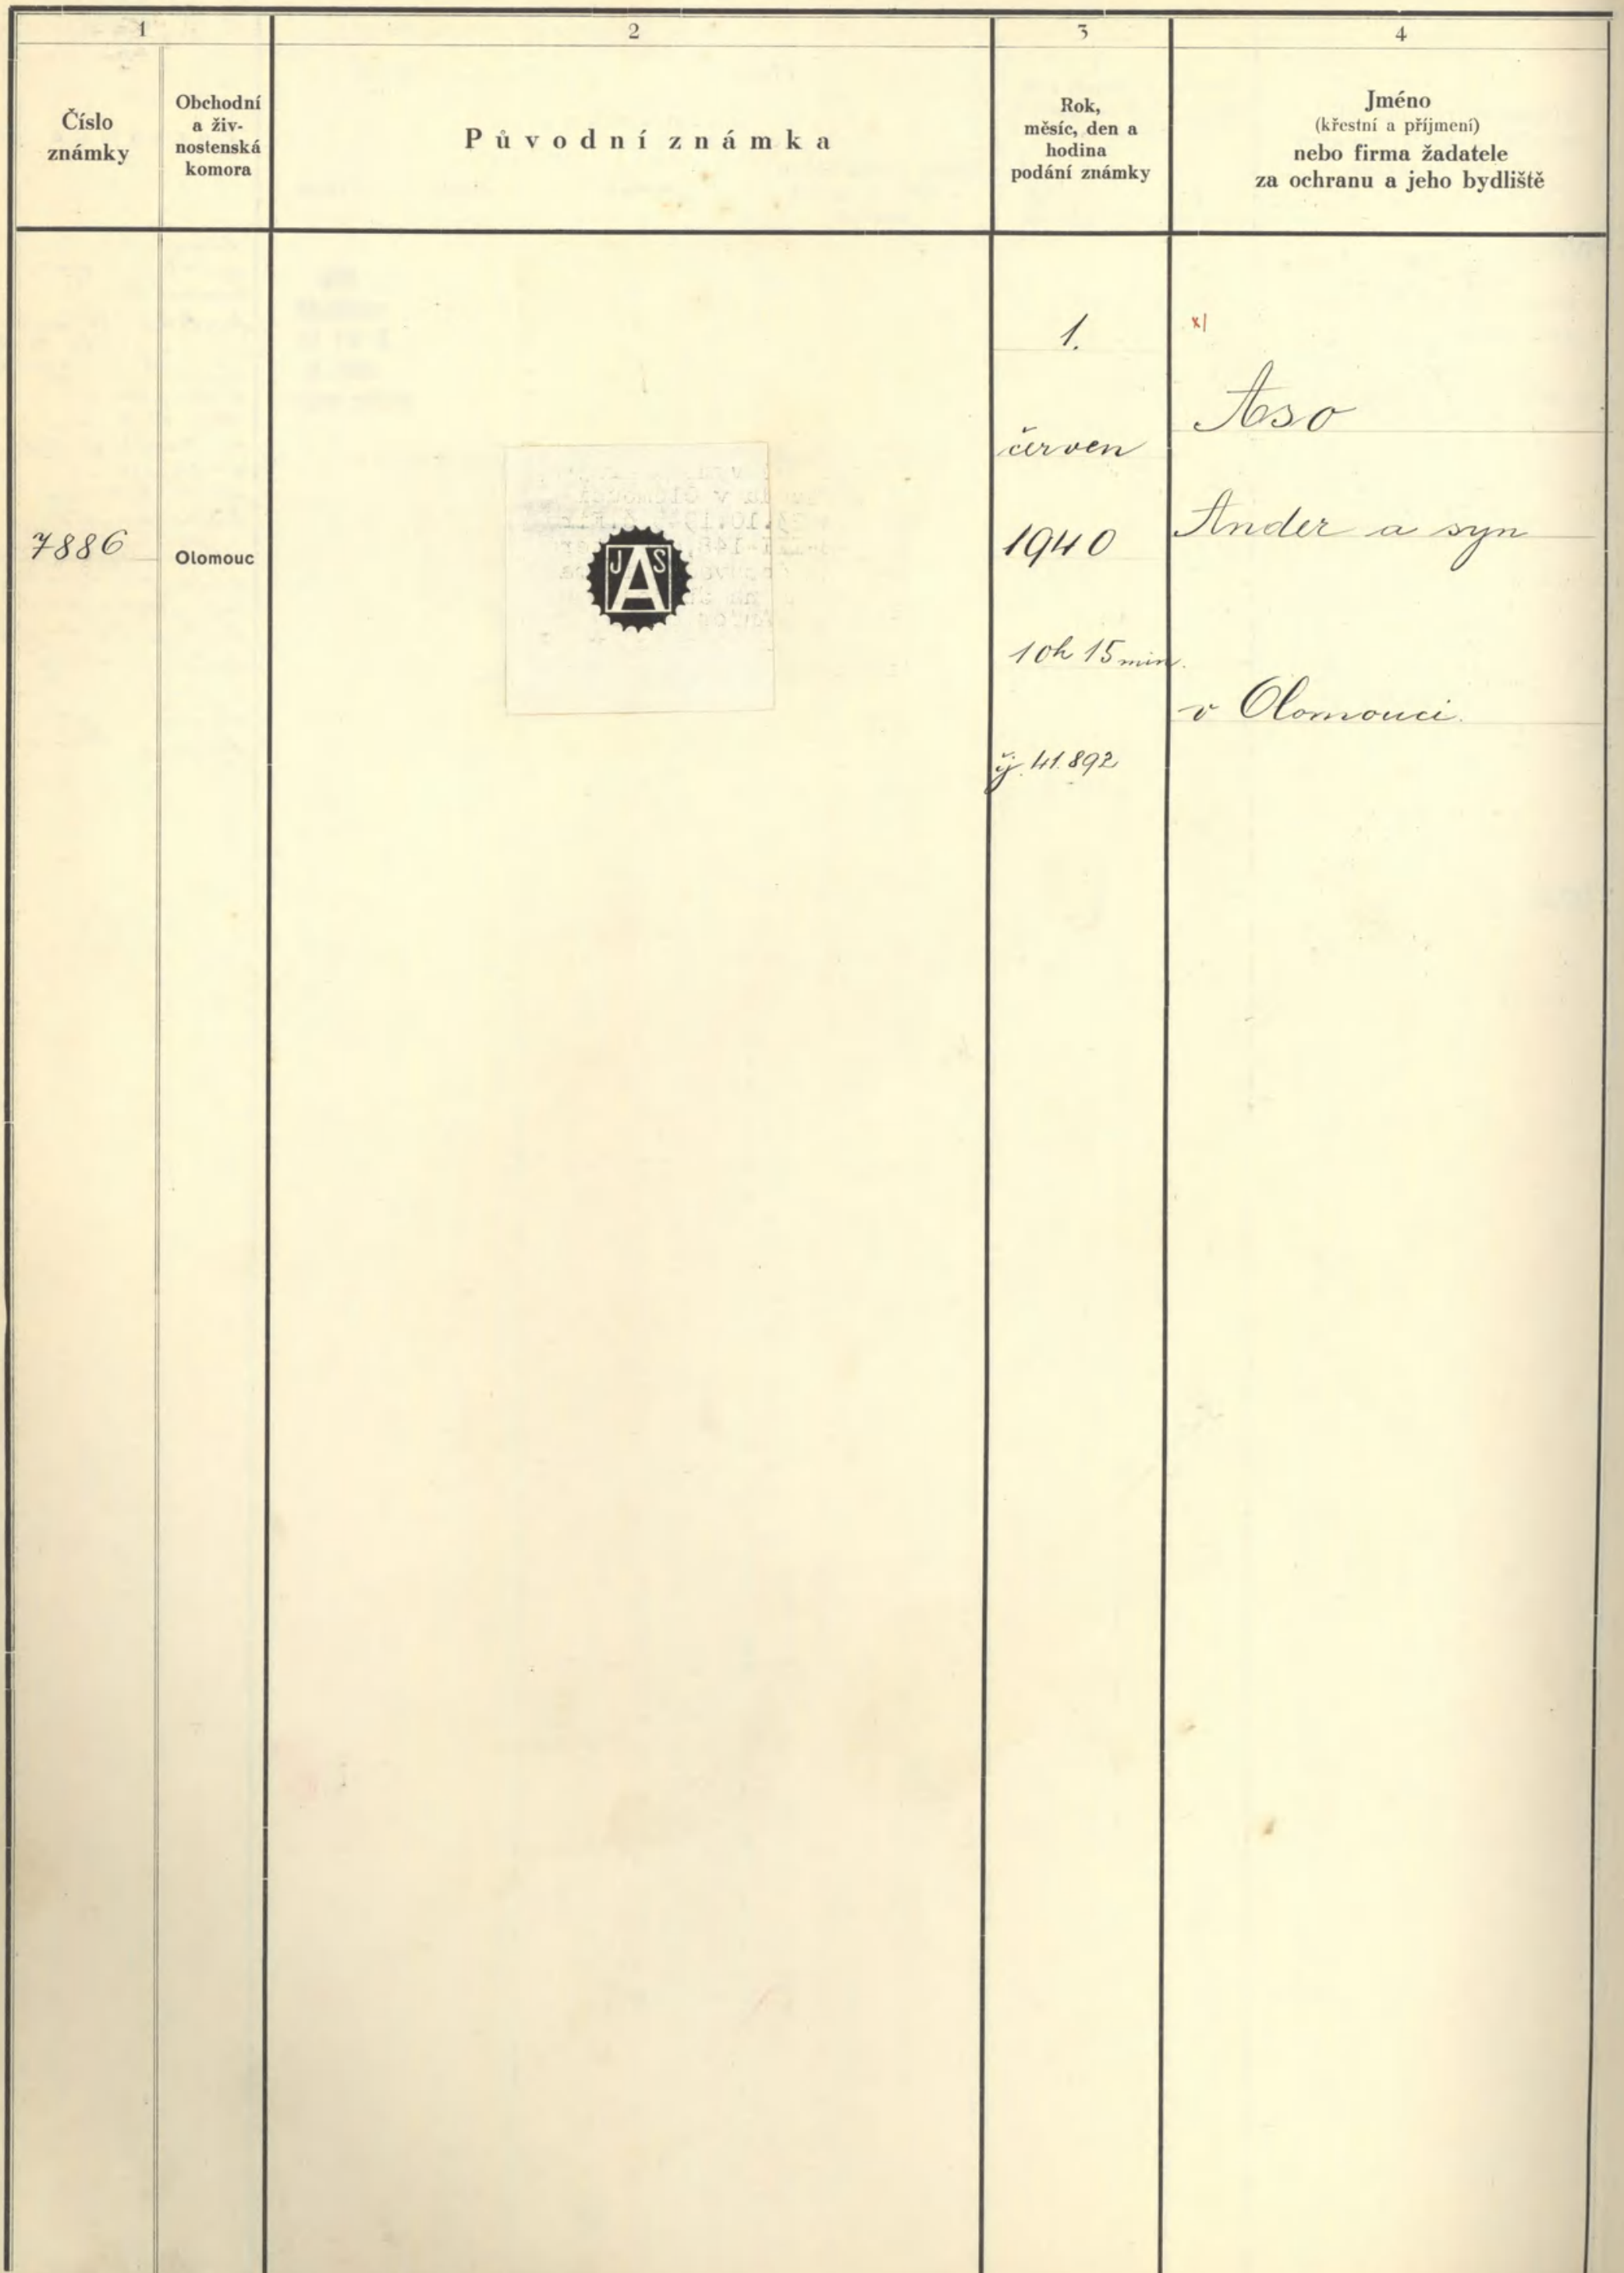 1
2
3
4
Číslo
známky
Obchodní
a živ-
nostenská
komora
Původní známka
Rok,
měsíc, den a
hodina
podání známky
Jméno
(křestní a příjmení)
nebo firma žadatele
za ochranu a jeho bydliště
7886
Olomouc
J A S
1.
červen
1940
10h 15 min.
čj. 41.892
x)
Aso
Ander a syn
v Olomouci.